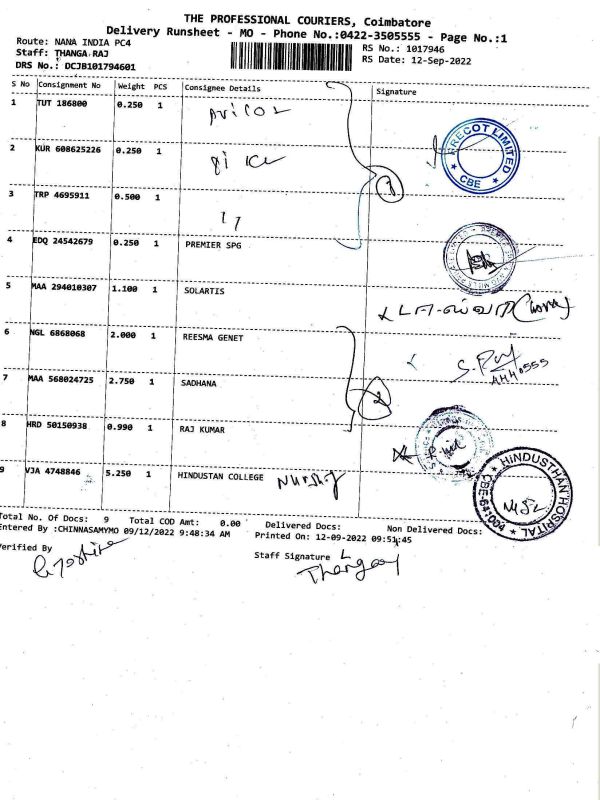 THE PROFESSIONAL COURIERS, Coimbatore
Delivery Runsheet - MO - Phone No.:0422-3505555 - Page No.:1
Route: NANA INDIA PC4
RS No.: 1017946
Staff: THANGA RAJ
RS Date: 12-Sep-2022
DRS No.: DCJB101794601
S No Consignment No Weight PCS Consignee Details Signature
1 TUT 186800 0.250 1
2 KUR 608625226 0.250 1
3 TRP 4695911 0.500 1
4 EDQ 24542679 0.250 1 PREMIER SPG
5 MAA 294010307 1.100 1 SOLARTIS
6 NGL 6868068 2.000 1 REESMA GENET
7 MAA 568024725 2.750 1 SADHANA
8 HRD 50150938 0.990 1 RAJ KUMAR
9 VJA 4748846 5.250 1 HINDUSTAN COLLEGE Nursing
1
2
PRECOT LIMITED
CBE
HINDUSTHAN HOSPITAL
CBE-641004
Total No. Of Docs: 9 Total COD Amt: 0.00 Delivered Docs: Non Delivered Docs:
Entered By :CHINNASAMYMO 09/12/2022 9:48:34 AM Printed On: 12-09-2022 09:51:45
Verified By
Staff Signature